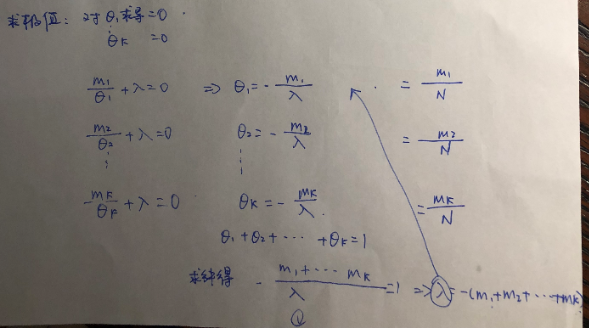 求极值: 对θ₁求导=0
⋮
θK =0
m₁/θ₁ + λ=0 ⇒ θ₁= - m₁/λ = m₁/N
m₂/θ₂ + λ=0 θ₂= - m₂/λ = m₂/N
⋮ ⋮
mK/θK + λ=0 θK= - mK/λ = mK/N
θ₁+θ₂+ ⋯ +θK=1
求解得 - (m₁+⋯ mK)/λ =1 ⇒ λ=-(m₁+m₂+⋯+mK)